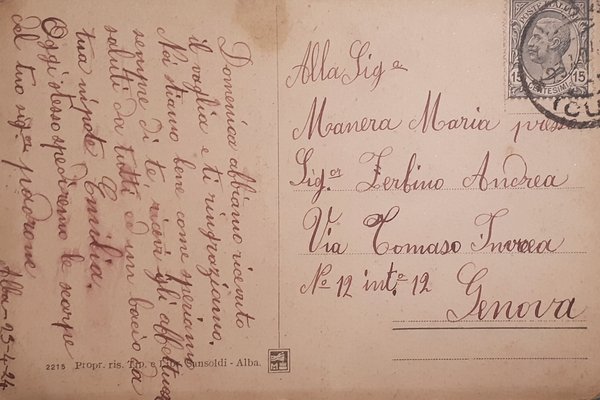 Domenica abbiamo ricevuto
il vaglia e ti ringraziamo.
Noi stiamo bene come speriamo
sempre di te, ricevi gli affettuosi
saluti da tutti ed un bacio da
tua nipote Emilia.
Oggi stesso spediremo le scarpe
del tuo sig.r padrone
Alba - 23-4-24
Alla Sig.a
Manera Maria presso
Sig.or Zerbino Andrea
Via Tomaso Invrea
No 12 int.o 12
Genova
2215 Propr. ris. Tip. e Sansoldi - Alba.
15 15
CENTESIMI
(CU